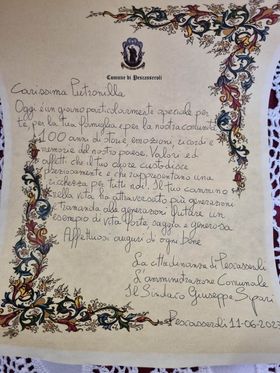 Comune di Pescasseroli
Carissima Petronilla
Oggi è un giorno particolarmente speciale per
te, per la tua famiglia e per la nostra comunità
100 anni di storie, emozioni, ricordi e
memorie del nostro paese. Valori ed
affetti che il tuo cuore custodisce
preziosamente e che rappresentano una
ricchezza per tutti noi. Il tuo cammino
nella vita ha attraversato più generazioni
e tramanda alle generazioni future un
esempio di vita forte, saggia e generosa.
Affettuosi auguri di ogni bene
La cittadinanza di Pescasseroli
L'amministrazione Comunale
Il Sindaco Giuseppe Sipari
Pescasseroli 11-06-2023